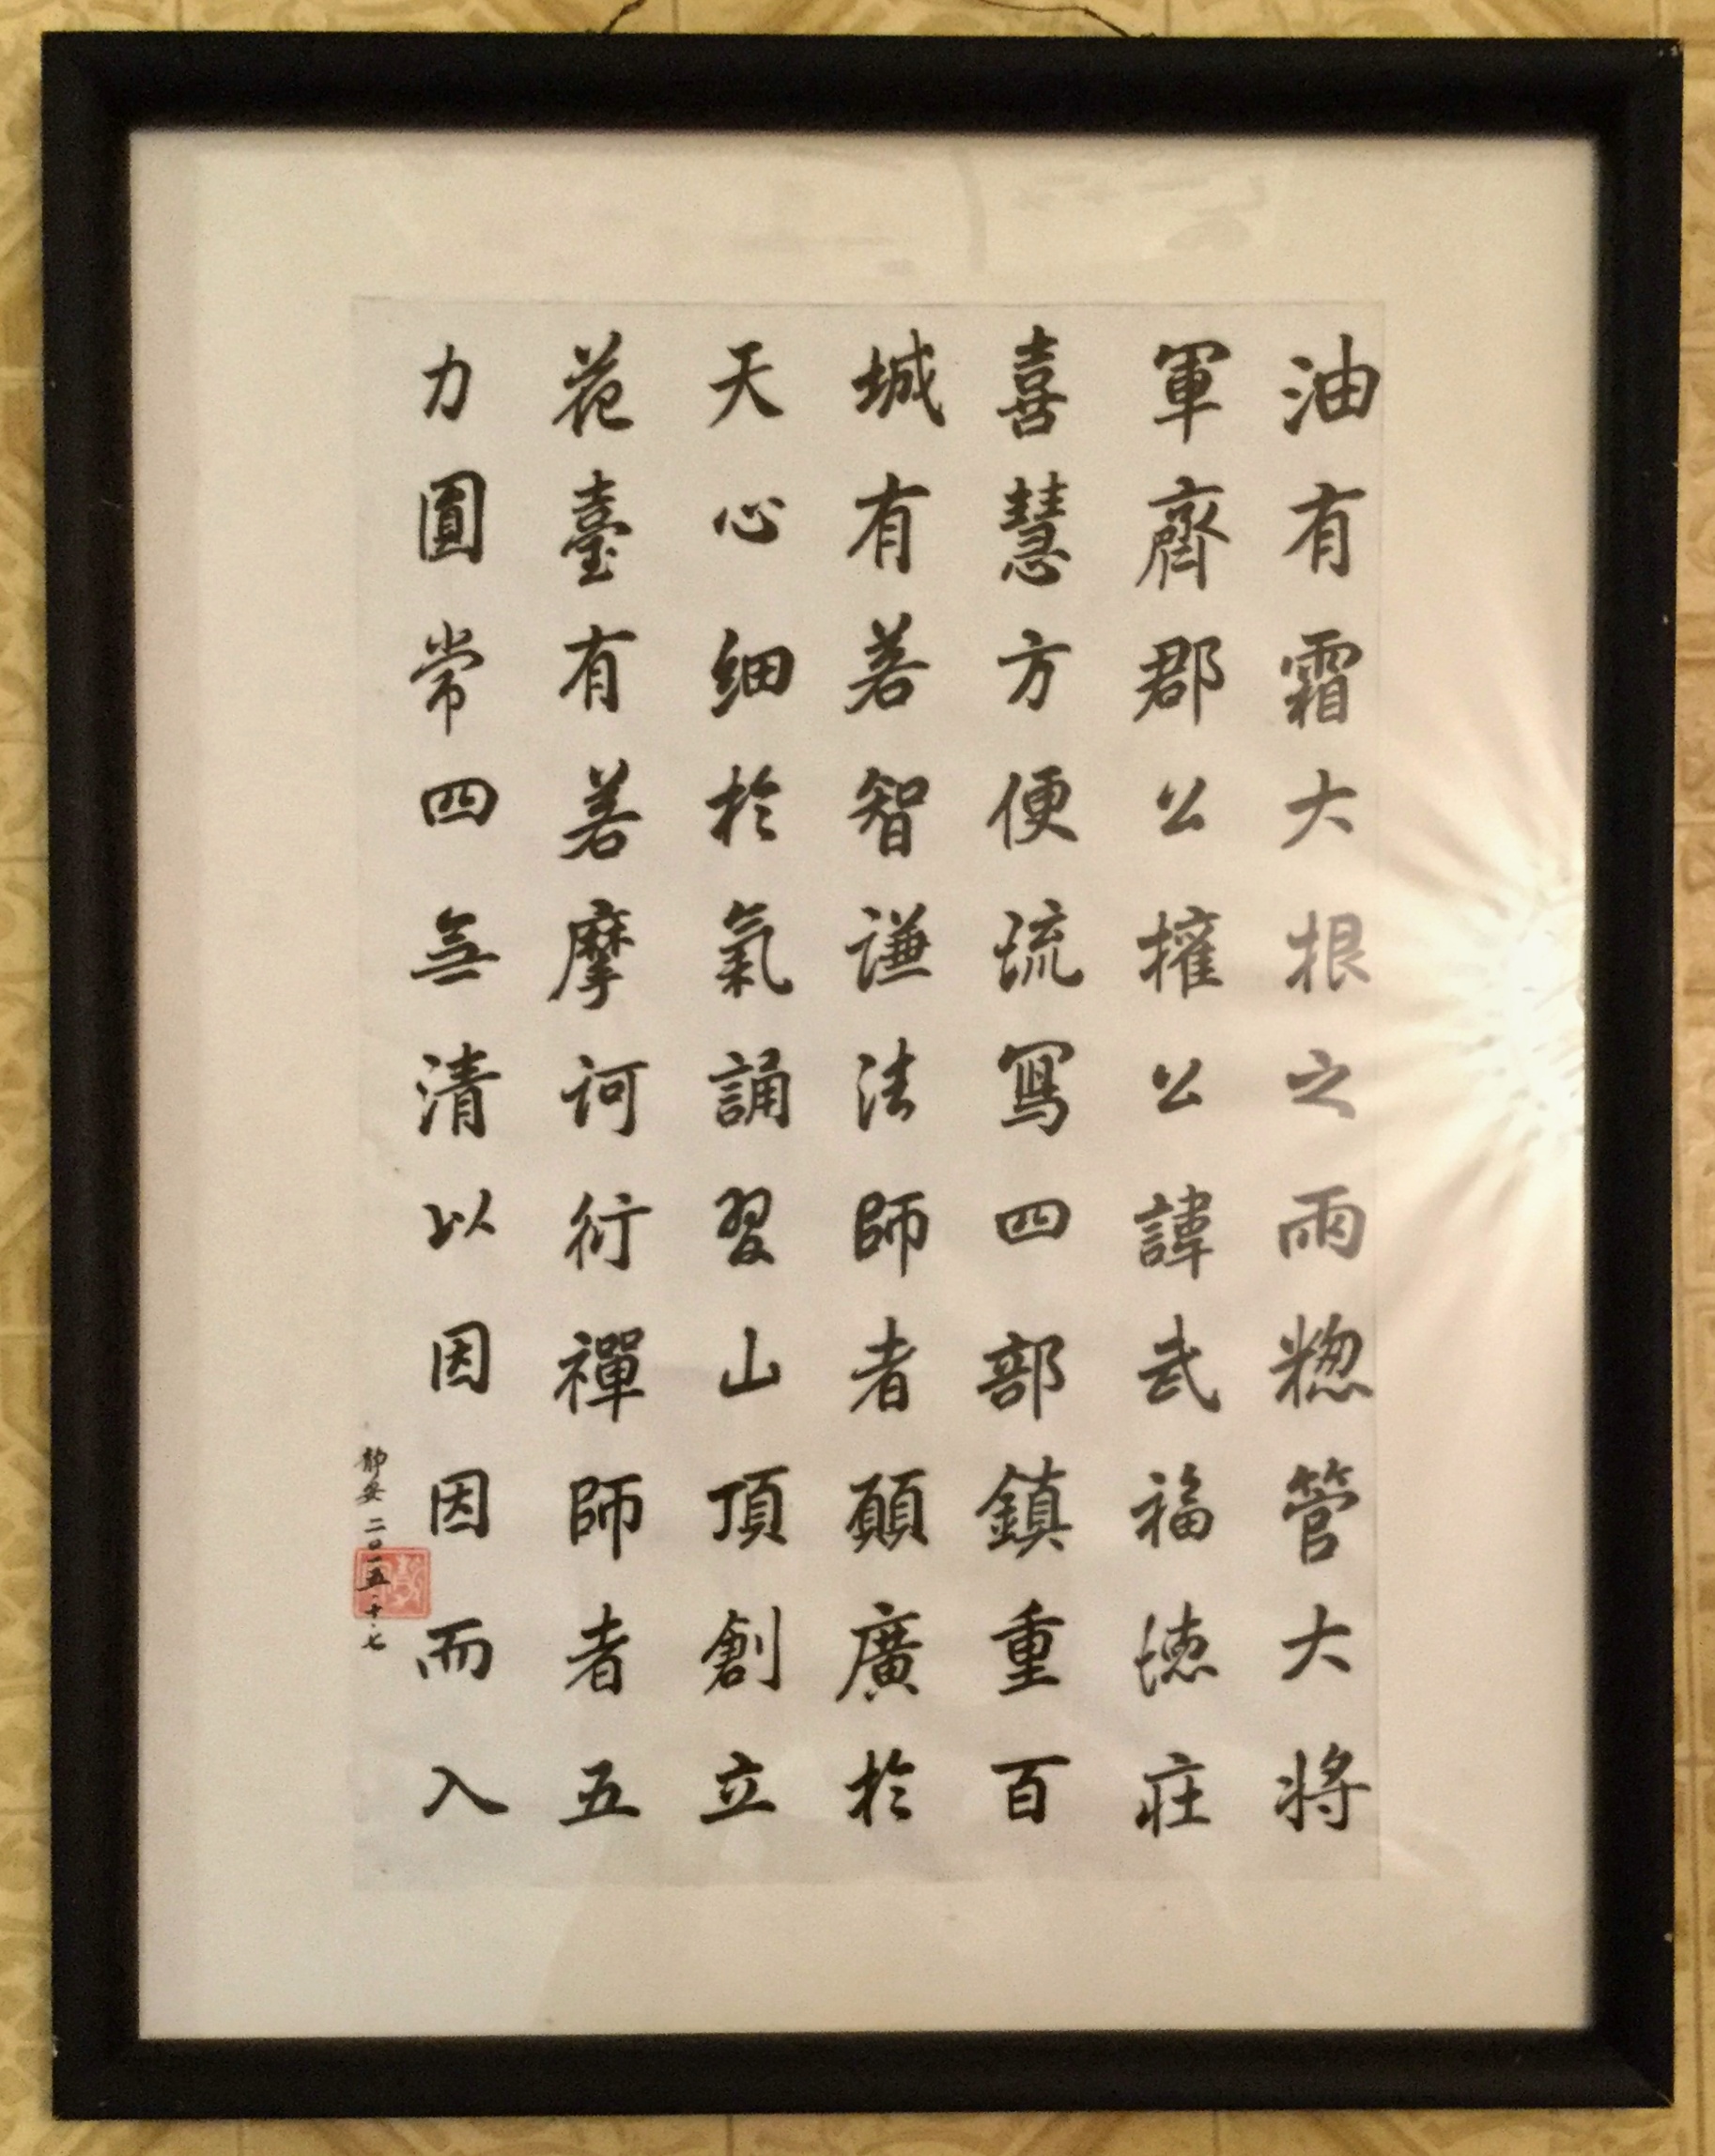 油有霜大根之雨揔管大將
軍齊郡公擁公諱武福德莊
喜慧方便琉寫四部鎮重百
城有若智謙法師者願廣於
天心細於氣誦習山頂創立
花臺有若摩訶衍禪師者五
力圓常四無清以因因而入
靜安二〇一五.十.七